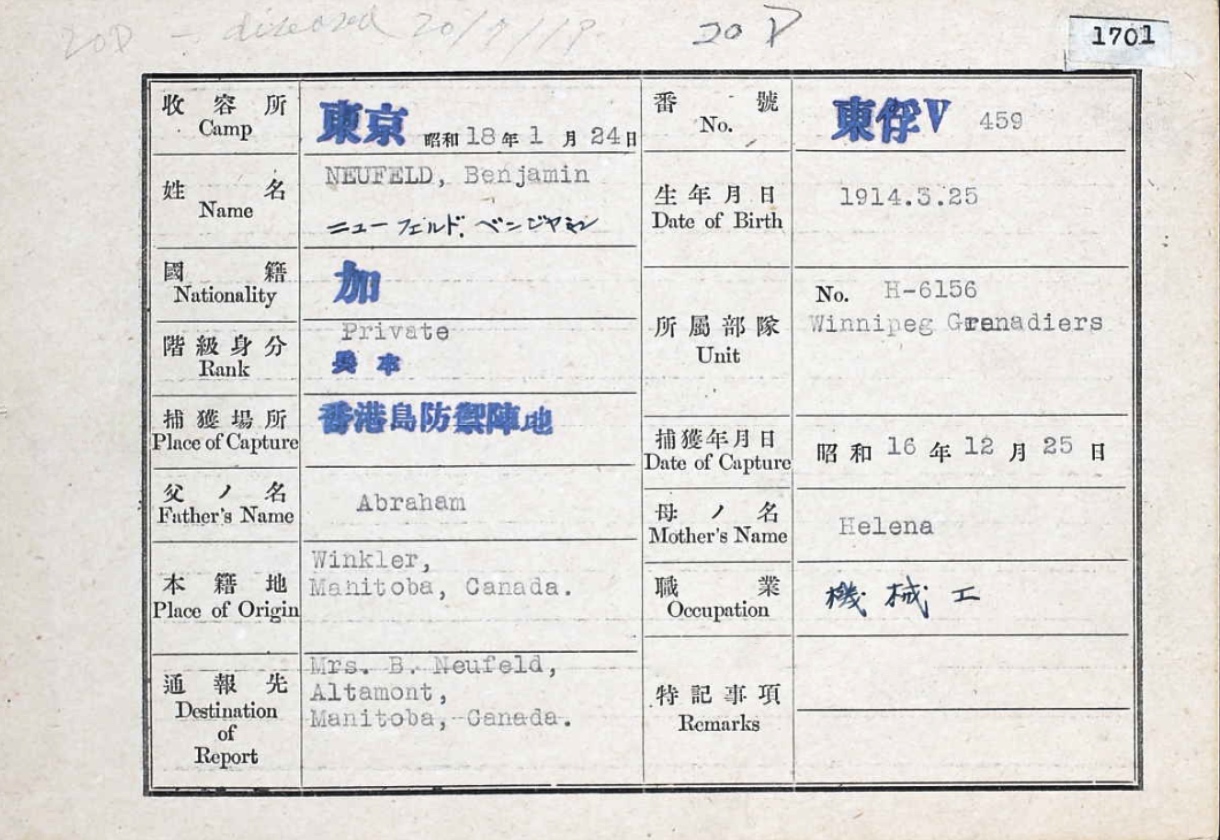 20 D
1701
收容所
Camp
東京 昭和18年1月24日
番號
No.
東俘V 459
姓名
Name
NEUFELD, Benjamin
ニューフェルド. ベンジヤミン
生年月日
Date of Birth
1914.3.25
國籍
Nationality
加
所屬部隊
Unit
No. H-6156
Winnipeg Grenadiers
階級身分
Rank
Private
捕獲場所
Place of Capture
香港島防禦陣地
捕獲年月日
Date of Capture
昭和16年12月25日
父ノ名
Father's Name
Abraham
母ノ名
Mother's Name
Helena
本籍地
Place of Origin
Winkler,
Manitoba, Canada.
職業
Occupation
機械工
通報先
Destination
of
Report
Mrs. B. Neufeld,
Altamont,
Manitoba, Canada.
特記事項
Remarks